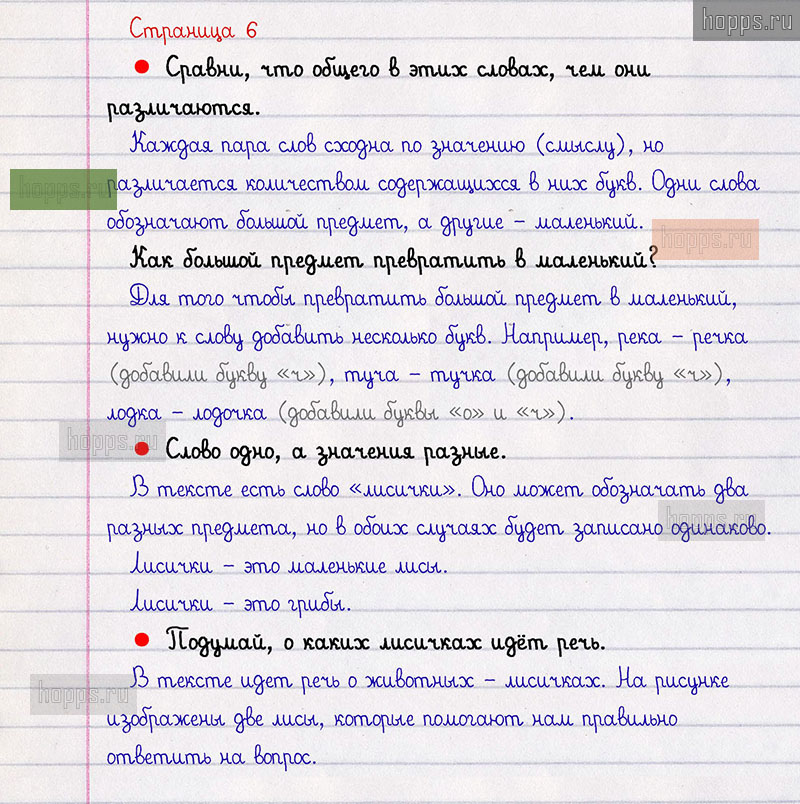 hopps.ru
Страница 6
Сравни, что общего в этих словах, чем они
различаются.
Каждая пара слов сходна по значению (смыслу), но
различается количеством содержащихся в них букв. Одни слова
hopps.ru
обозначают большой предмет, а другие – маленький.
hopps.ru
Как большой предмет превратить в маленький?
Для того чтобы превратить большой предмет в маленький,
нужно к слову добавить несколько букв. Например, река – речка
(добавили букву «ч»), туча – тучка (добавили букву «ч»),
лодка – лодочка (добавили буквы «о» и «ч»).
hopps.ru
Слово одно, а значения разные.
В тексте есть слово «лисички». Оно может обозначать два
разных предмета, но в обоих случаях будет записано одинаково.
hopps.ru
Лисички – это маленькие лисы.
Лисички – это грибы.
Подумай, о каких лисичках идёт речь.
В тексте идет речь о животных – лисичках. На рисунке
hopps.ru
изображены две лисы, которые помогают нам правильно
ответить на вопрос.